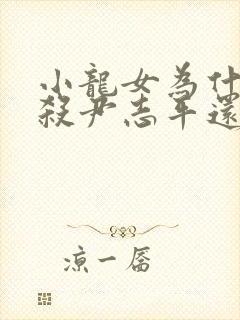 小龍女為什
殺尹志平還
涼一厴